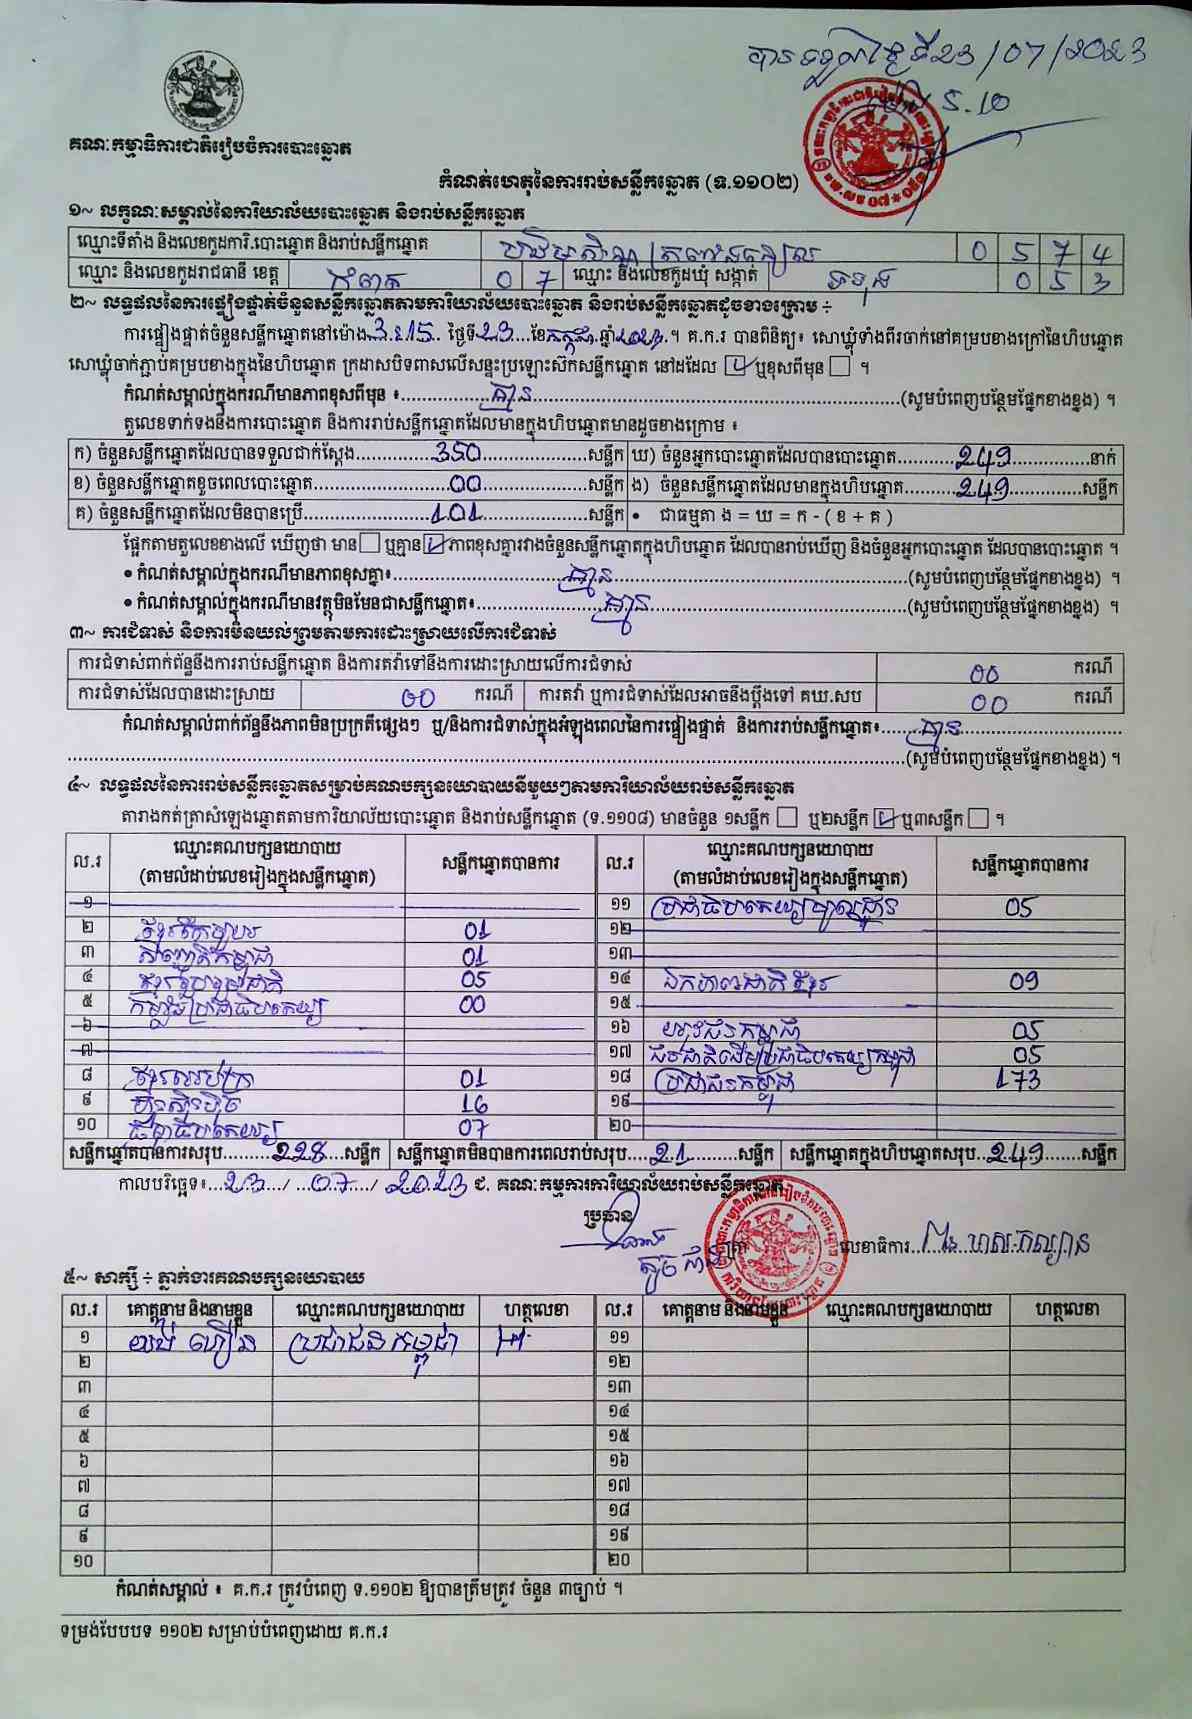 បានទទួលថ្ងៃទី23/07/2023
ម៉ោង 5.10
គណៈកម្មាធិការជាតិរៀបចំការបោះឆ្នោត
កំណត់ហេតុនៃការរាប់សន្លឹកឆ្នោត (ទ.១១០២)
១~ លក្ខណៈសម្គាល់នៃការិយាល័យបោះឆ្នោត និងរាប់សន្លឹកឆ្នោត
ឈ្មោះទីតាំង និងលេខកូដការិ.បោះឆ្នោត និងរាប់សន្លឹកឆ្នោត 0 5 7 4
ឈ្មោះ និងលេខកូដរាជធានី ខេត្ត កំពត 0 7 ឈ្មោះ និងលេខកូដឃុំ សង្កាត់ 0 5 3
២~ លទ្ធផលនៃការផ្ទៀងផ្ទាត់ចំនួនសន្លឹកឆ្នោតតាមការិយាល័យបោះឆ្នោត និងរាប់សន្លឹកឆ្នោតដូចខាងក្រោម ÷
ការផ្ទៀងផ្ទាត់ចំនួនសន្លឹកឆ្នោតនៅម៉ោង 3:15 ថ្ងៃទី 23 ខែ កក្កដា ឆ្នាំ 2023 ។ គ.ក.រ បានពិនិត្យ៖ សោឃ្លុំទាំងពីរចាក់នៅគម្របខាងក្រៅនៃហិបឆ្នោត
សោឃ្លុំចាក់ភ្ជាប់គម្របខាងក្នុងនៃហិបឆ្នោត ក្រដាសបិទពាសលើសន្ទះប្រឡោះស៊កសន្លឹកឆ្នោត នៅដដែល ☑ ឬខុសពីមុន ☐ ។
កំណត់សម្គាល់ក្នុងករណីមានភាពខុសពីមុន ៖ គ្មាន (សូមបំពេញបន្ថែមផ្នែកខាងខ្នង) ។
តួលេខទាក់ទងនឹងការបោះឆ្នោត និងការរាប់សន្លឹកឆ្នោតដែលមានក្នុងហិបឆ្នោតមានដូចខាងក្រោម ៖
ក) ចំនួនសន្លឹកឆ្នោតដែលបានទទួលជាក់ស្តែង 350 សន្លឹក ឃ) ចំនួនអ្នកបោះឆ្នោតដែលបានបោះឆ្នោត 249 នាក់
ខ) ចំនួនសន្លឹកឆ្នោតខូចពេលបោះឆ្នោត 00 សន្លឹក ង) ចំនួនសន្លឹកឆ្នោតដែលមានក្នុងហិបឆ្នោត 249 សន្លឹក
គ) ចំនួនសន្លឹកឆ្នោតដែលមិនបានប្រើ 101 សន្លឹក • ជាធម្មតា ង = ឃ = ក - ( ខ + គ )
ផ្អែកតាមតួលេខខាងលើ ឃើញថា មាន ☐ ឬគ្មាន ☑ ភាពខុសគ្នារវាងចំនួនសន្លឹកឆ្នោតក្នុងហិបឆ្នោត ដែលបានរាប់ឃើញ និងចំនួនអ្នកបោះឆ្នោត ដែលបានបោះឆ្នោត ។
• កំណត់សម្គាល់ក្នុងករណីមានភាពខុសគ្នា៖ គ្មាន (សូមបំពេញបន្ថែមផ្នែកខាងខ្នង) ។
• កំណត់សម្គាល់ក្នុងករណីមានវត្ថុមិនមែនជាសន្លឹកឆ្នោត៖ គ្មាន (សូមបំពេញបន្ថែមផ្នែកខាងខ្នង) ។
៣~ ការជំទាស់ និងការមិនយល់ព្រមតាមការដោះស្រាយលើការជំទាស់
ការជំទាស់ពាក់ព័ន្ធនឹងការរាប់សន្លឹកឆ្នោត និងការតវ៉ាទៅនឹងការដោះស្រាយលើការជំទាស់ 00 ករណី
ការជំទាស់ដែលបានដោះស្រាយ 00 ករណី ការតវ៉ា ឬការជំទាស់ដែលអាចនឹងប្តឹងទៅ គឃ.សប 00 ករណី
កំណត់សម្គាល់ពាក់ព័ន្ធនឹងភាពមិនប្រក្រតីផ្សេងៗ ឬ/និងការជំទាស់ក្នុងអំឡុងពេលនៃការផ្ទៀងផ្ទាត់ និងការរាប់សន្លឹកឆ្នោត៖ គ្មាន
(សូមបំពេញបន្ថែមផ្នែកខាងខ្នង) ។
៤~ លទ្ធផលនៃការរាប់សន្លឹកឆ្នោតសម្រាប់គណបក្សនយោបាយនីមួយៗតាមការិយាល័យរាប់សន្លឹកឆ្នោត
តារាងកត់ត្រាសំឡេងឆ្នោតតាមការិយាល័យបោះឆ្នោត និងរាប់សន្លឹកឆ្នោត (ទ.១១០៨) មានចំនួន ១សន្លឹក ☐ ឬ២សន្លឹក ☑ ឬ៣សន្លឹក ☐ ។
ល.រ ឈ្មោះគណបក្សនយោបាយ (តាមលំដាប់លេខរៀងក្នុងសន្លឹកឆ្នោត) សន្លឹកឆ្នោតបានការ ល.រ ឈ្មោះគណបក្សនយោបាយ (តាមលំដាប់លេខរៀងក្នុងសន្លឹកឆ្នោត) សន្លឹកឆ្នោតបានការ
១ ១១ ប្រជាធិបតេយ្យមូលដ្ឋាន 05
២ ខ្មែរតែមួយ 01 ១២
៣ សញ្ជាតិកម្ពុជា 01 ១៣
៤ ខ្មែររួបរួមជាតិ 05 ១៤ ឯកភាពជាតិខ្មែរ 09
៥ កម្លាំងប្រជាធិបតេយ្យ 00 ១៥
៦ ១៦ យុវជនកម្ពុជា 05
៧ ១៧ ជនជាតិដើមប្រជាធិបតេយ្យកម្ពុជា 05
៨ 01 ១៨ ប្រជាជនកម្ពុជា 173
៩ ហ៊្វុនស៊ិនប៉ិច 16 ១៩
១០ ធិបតេយ្យ 07 ២០
សន្លឹកឆ្នោតបានការសរុប 228 សន្លឹក សន្លឹកឆ្នោតមិនបានការពេលរាប់សរុប 21 សន្លឹក សន្លឹកឆ្នោតក្នុងហិបឆ្នោតសរុប 249 សន្លឹក
កាលបរិច្ឆេទ៖ 23 / 07 / 2023 ជ. គណៈកម្មការការិយាល័យរាប់សន្លឹកឆ្នោត
ប្រធាន
លេខាធិការ
៥~ សាក្សី ÷ ភ្នាក់ងារគណបក្សនយោបាយ
ល.រ គោត្តនាម និងនាមខ្លួន ឈ្មោះគណបក្សនយោបាយ ហត្ថលេខា ល.រ គោត្តនាម និងនាមខ្លួន ឈ្មោះគណបក្សនយោបាយ ហត្ថលេខា
១ ប្រជាជនកម្ពុជា ១១
២ ១២
៣ ១៣
៤ ១៤
៥ ១៥
៦ ១៦
៧ ១៧
៨ ១៨
៩ ១៩
១០ ២០
កំណត់សម្គាល់ ៖ គ.ក.រ ត្រូវបំពេញ ទ.១១០២ ឱ្យបានត្រឹមត្រូវ ចំនួន ៣ច្បាប់ ។
ទម្រង់បែបបទ ១១០២ សម្រាប់បំពេញដោយ គ.ក.រ